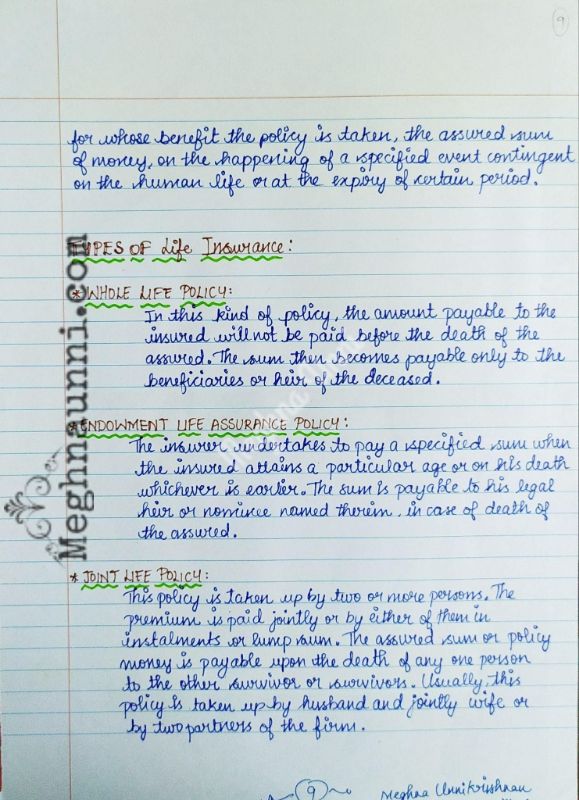 9
for whose benefit the policy is taken, the assured sum
of money, on the happening of a specified event contingent
on the human life or at the expiry of certain period.
TYPES OF Life Insurance:
* WHOLE LIFE POLICY:
In this kind of policy, the amount payable to the
insured will not be paid before the death of the
assured. The sum then becomes payable only to the
beneficiaries or heir of the deceased.
* ENDOWMENT LIFE ASSURANCE POLICY:
The insurer undertakes to pay a specified sum when
the insured attains a particular age or on his death
whichever is earlier. The sum is payable to his legal
heir or nominee named therein, in case of death of
the assured.
* JOINT LIFE POLICY:
This policy is taken up by two or more persons. The
premium is paid jointly or by either of them in
instalments or lump sum. The assured sum or policy
money is payable upon the death of any one person
to the other survivor or survivors. Usually, this
policy is taken up by husband and jointly wife or
by two partners of the firm.
9
Meghna Unnikrishnan
Meghnaunni.com